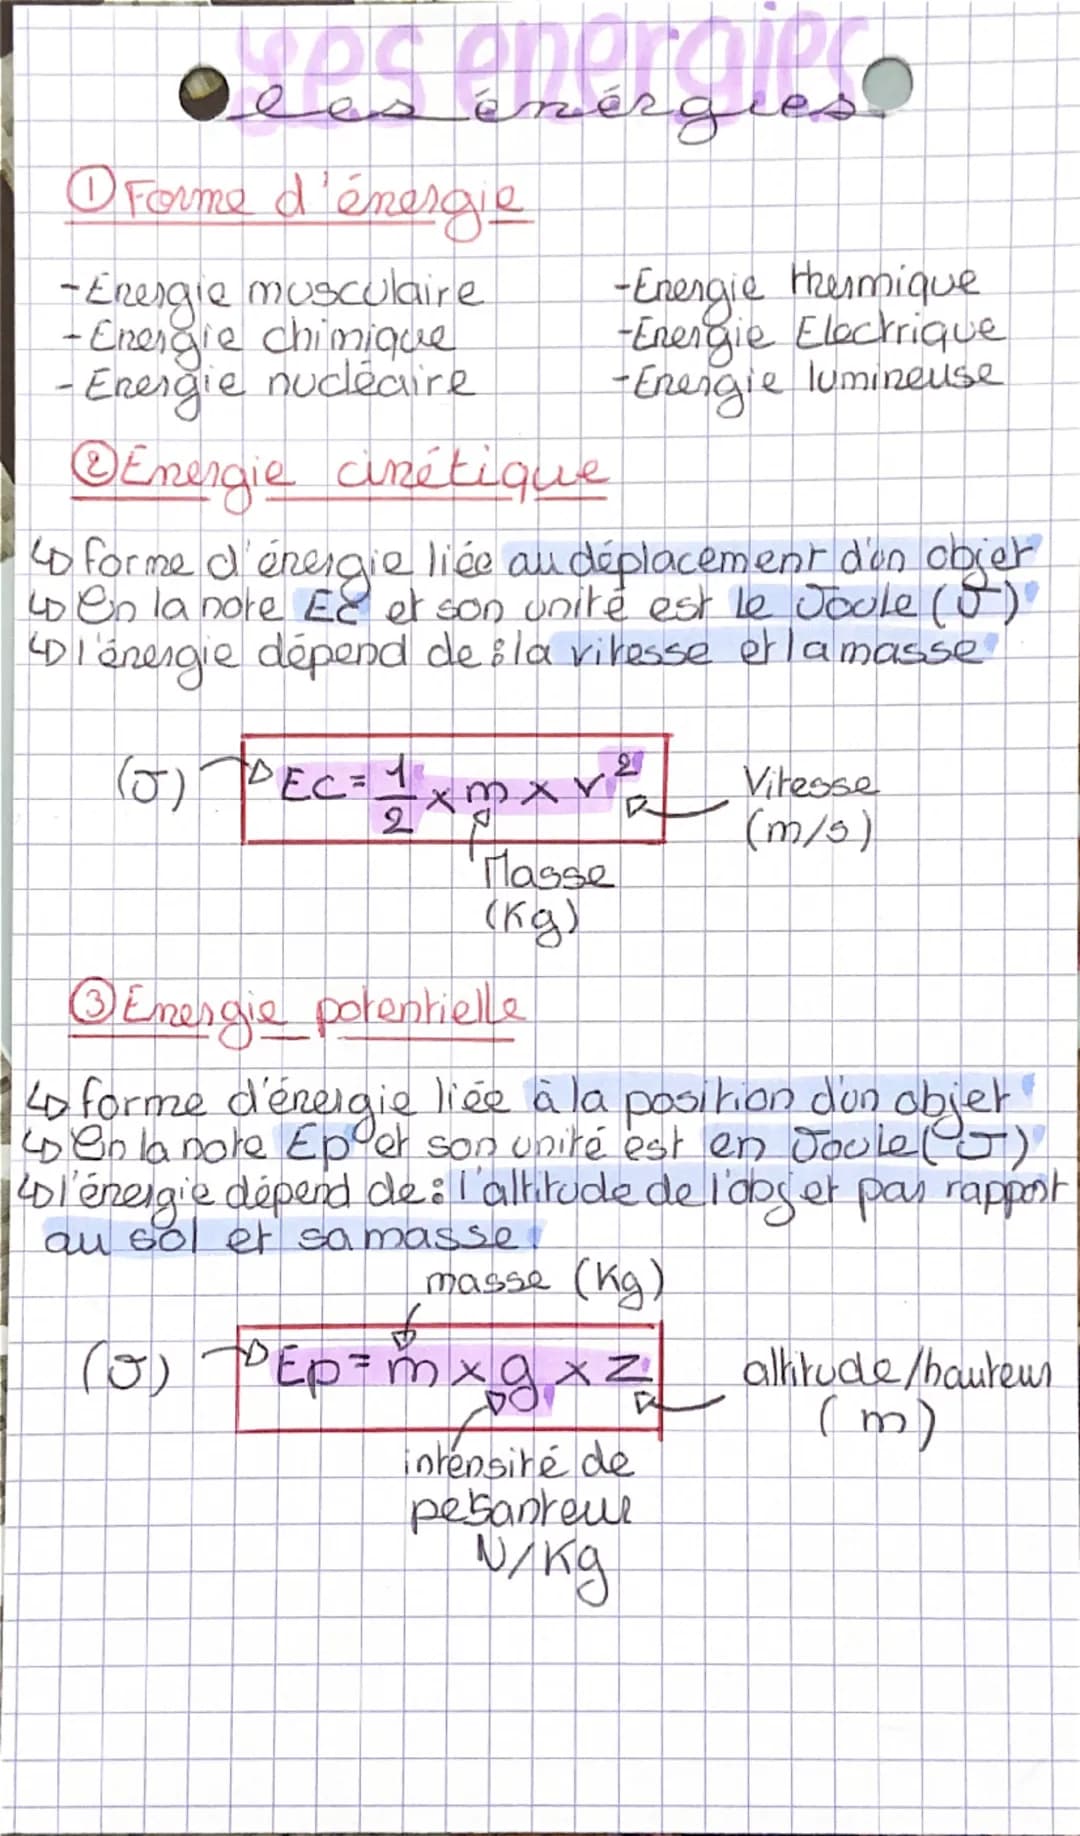 Les énergies
les énérgies
① Forme d'énergie
-Energie musculaire
-Energie thermique
-Energie chimique
-Energie Electrique
-Energie nucléaire
-Energie lumineuse
② Energie cinétique
↳ forme d'énergie liée au déplacement d'un objet
↳ On la note EC et son unité est le Joule (J)
↳ l'énergie dépend de : la vitesse et la masse
(J) → EC = 1/2 x m x v²
Vitesse
(m/s)
Masse
(Kg)
③ Energie potentielle
↳ forme d'énergie liée à la position d'un objet
↳ On la note Ep et son unité est en Joule (J)
↳ l'énergie dépend de : l'altitude de l'objet par rapport
au sol et sa masse
masse (Kg)
(J) → Ep = m x g x z
altitude/hauteur
(m)
inténsité de
pesanteur
N/Kg